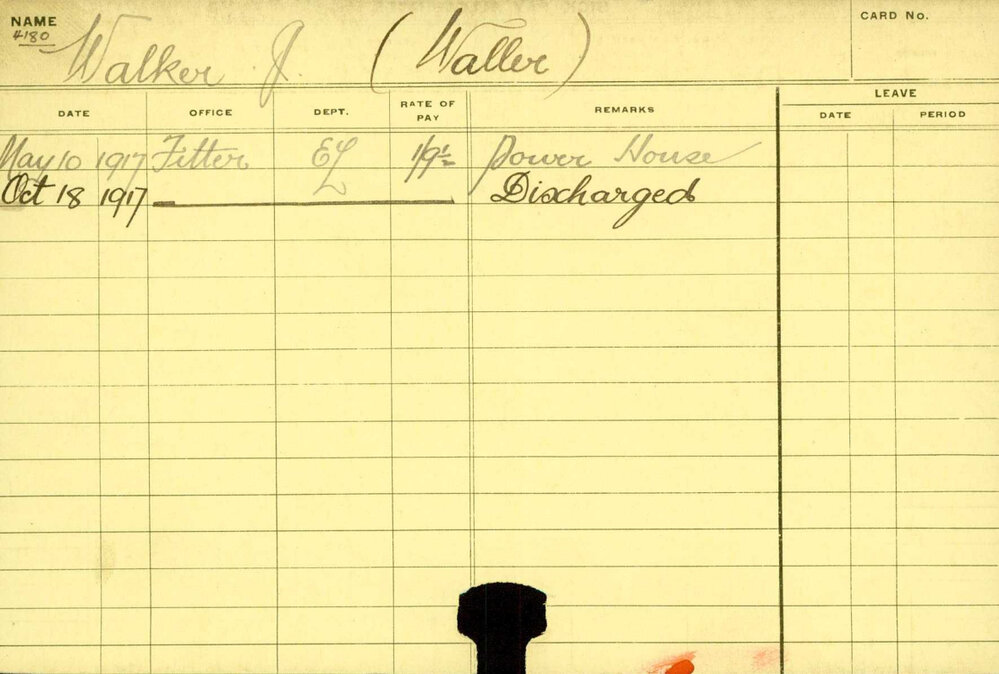 NAME CARD No.
4180
Walker J. (Waller)
LEAVE
DATE OFFICE DEPT. RATE OF PAY REMARKS DATE PERIOD
May 10 1917 Fitter EL 1/9½ Power House
Oct 18 1917 Discharged